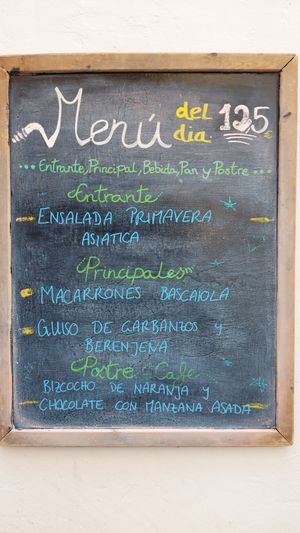 Menú del dia 12,5€
Entrante, Principal, Bebida, Pan y Postre
Entrante
ENSALADA PRIMAVERA
ASIATICA
Principales
MACARRONES BASCAIOLA
GUISO DE GARBANZOS y
BERENJENA
Postre o Cafe
BIZCOCHO DE NARANJA y
CHOCOLATE CON MANZANA ASADA